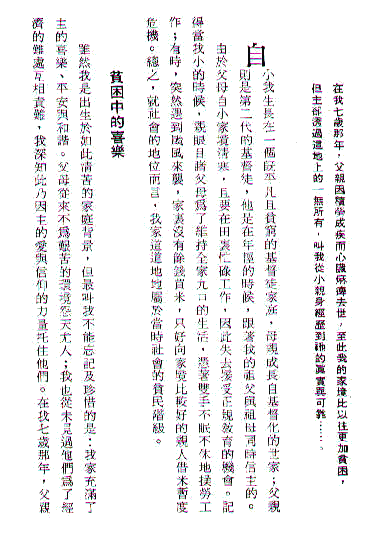 在我七歲那年，父親因積勞成疾而心臟麻痺去世，至此我的家境比以往更加貧困，
但主卻透過這地上的一無所有，叫我從小親身經歷到祂的真實與可靠……。
自小我生長在一個既平凡且貧窮的基督徒家庭，母親成長自基督化的世家；父親
則是第二代的基督徒，他是在年輕的時候，跟著我的祖父與祖母同時信主的。
由於父母自小家境清寒，且要在田裏忙碌工作，因此失去接受正規教育的機會。記
得當我小的時候，親眼目睹父母為了維持全家九口的生活，憑著雙手不眠不休地操勞工
作；有時，突然遇到颱風來襲，家裏沒有餘錢買米，只好向家境比較好的親人借米暫度
危機。總之，就社會的地位而言，我家道道地地屬於當時社會的貧民階級。
貧困中的喜樂
雖然我是出生於如此清苦的家庭背景，但最叫我不能忘記及珍惜的是：我家充滿了
主的喜樂、平安與和諧。父母從來不為艱苦的環境怨天尤人；我也從未見過他們為了經
濟的難處互相責難，我深知此乃因主的愛與信仰的力量托住他們。在我七歲那年，父親